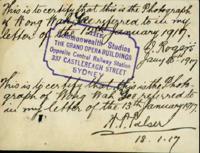 This is to certify that this is the Photograph
of Wong Wah referred to in my
letter of the 12th January 1917.
B. Rogers
Commonwealth Studios
THE GRAND OPERA BUILDINGS
Opposite Central Railway Station
237 CASTLEREAGH STREET
SYDNEY
This is to certify that this is the Photo-
graph of referred to
in my letter of the 13th January 1917
18.1.17